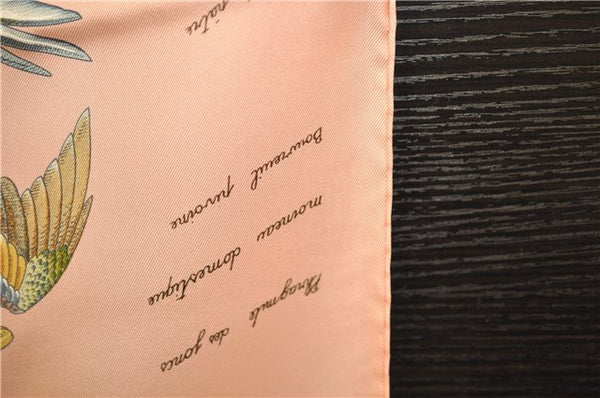 Phragmite des joncs
moineau domestique
Bouvreuil pivoine